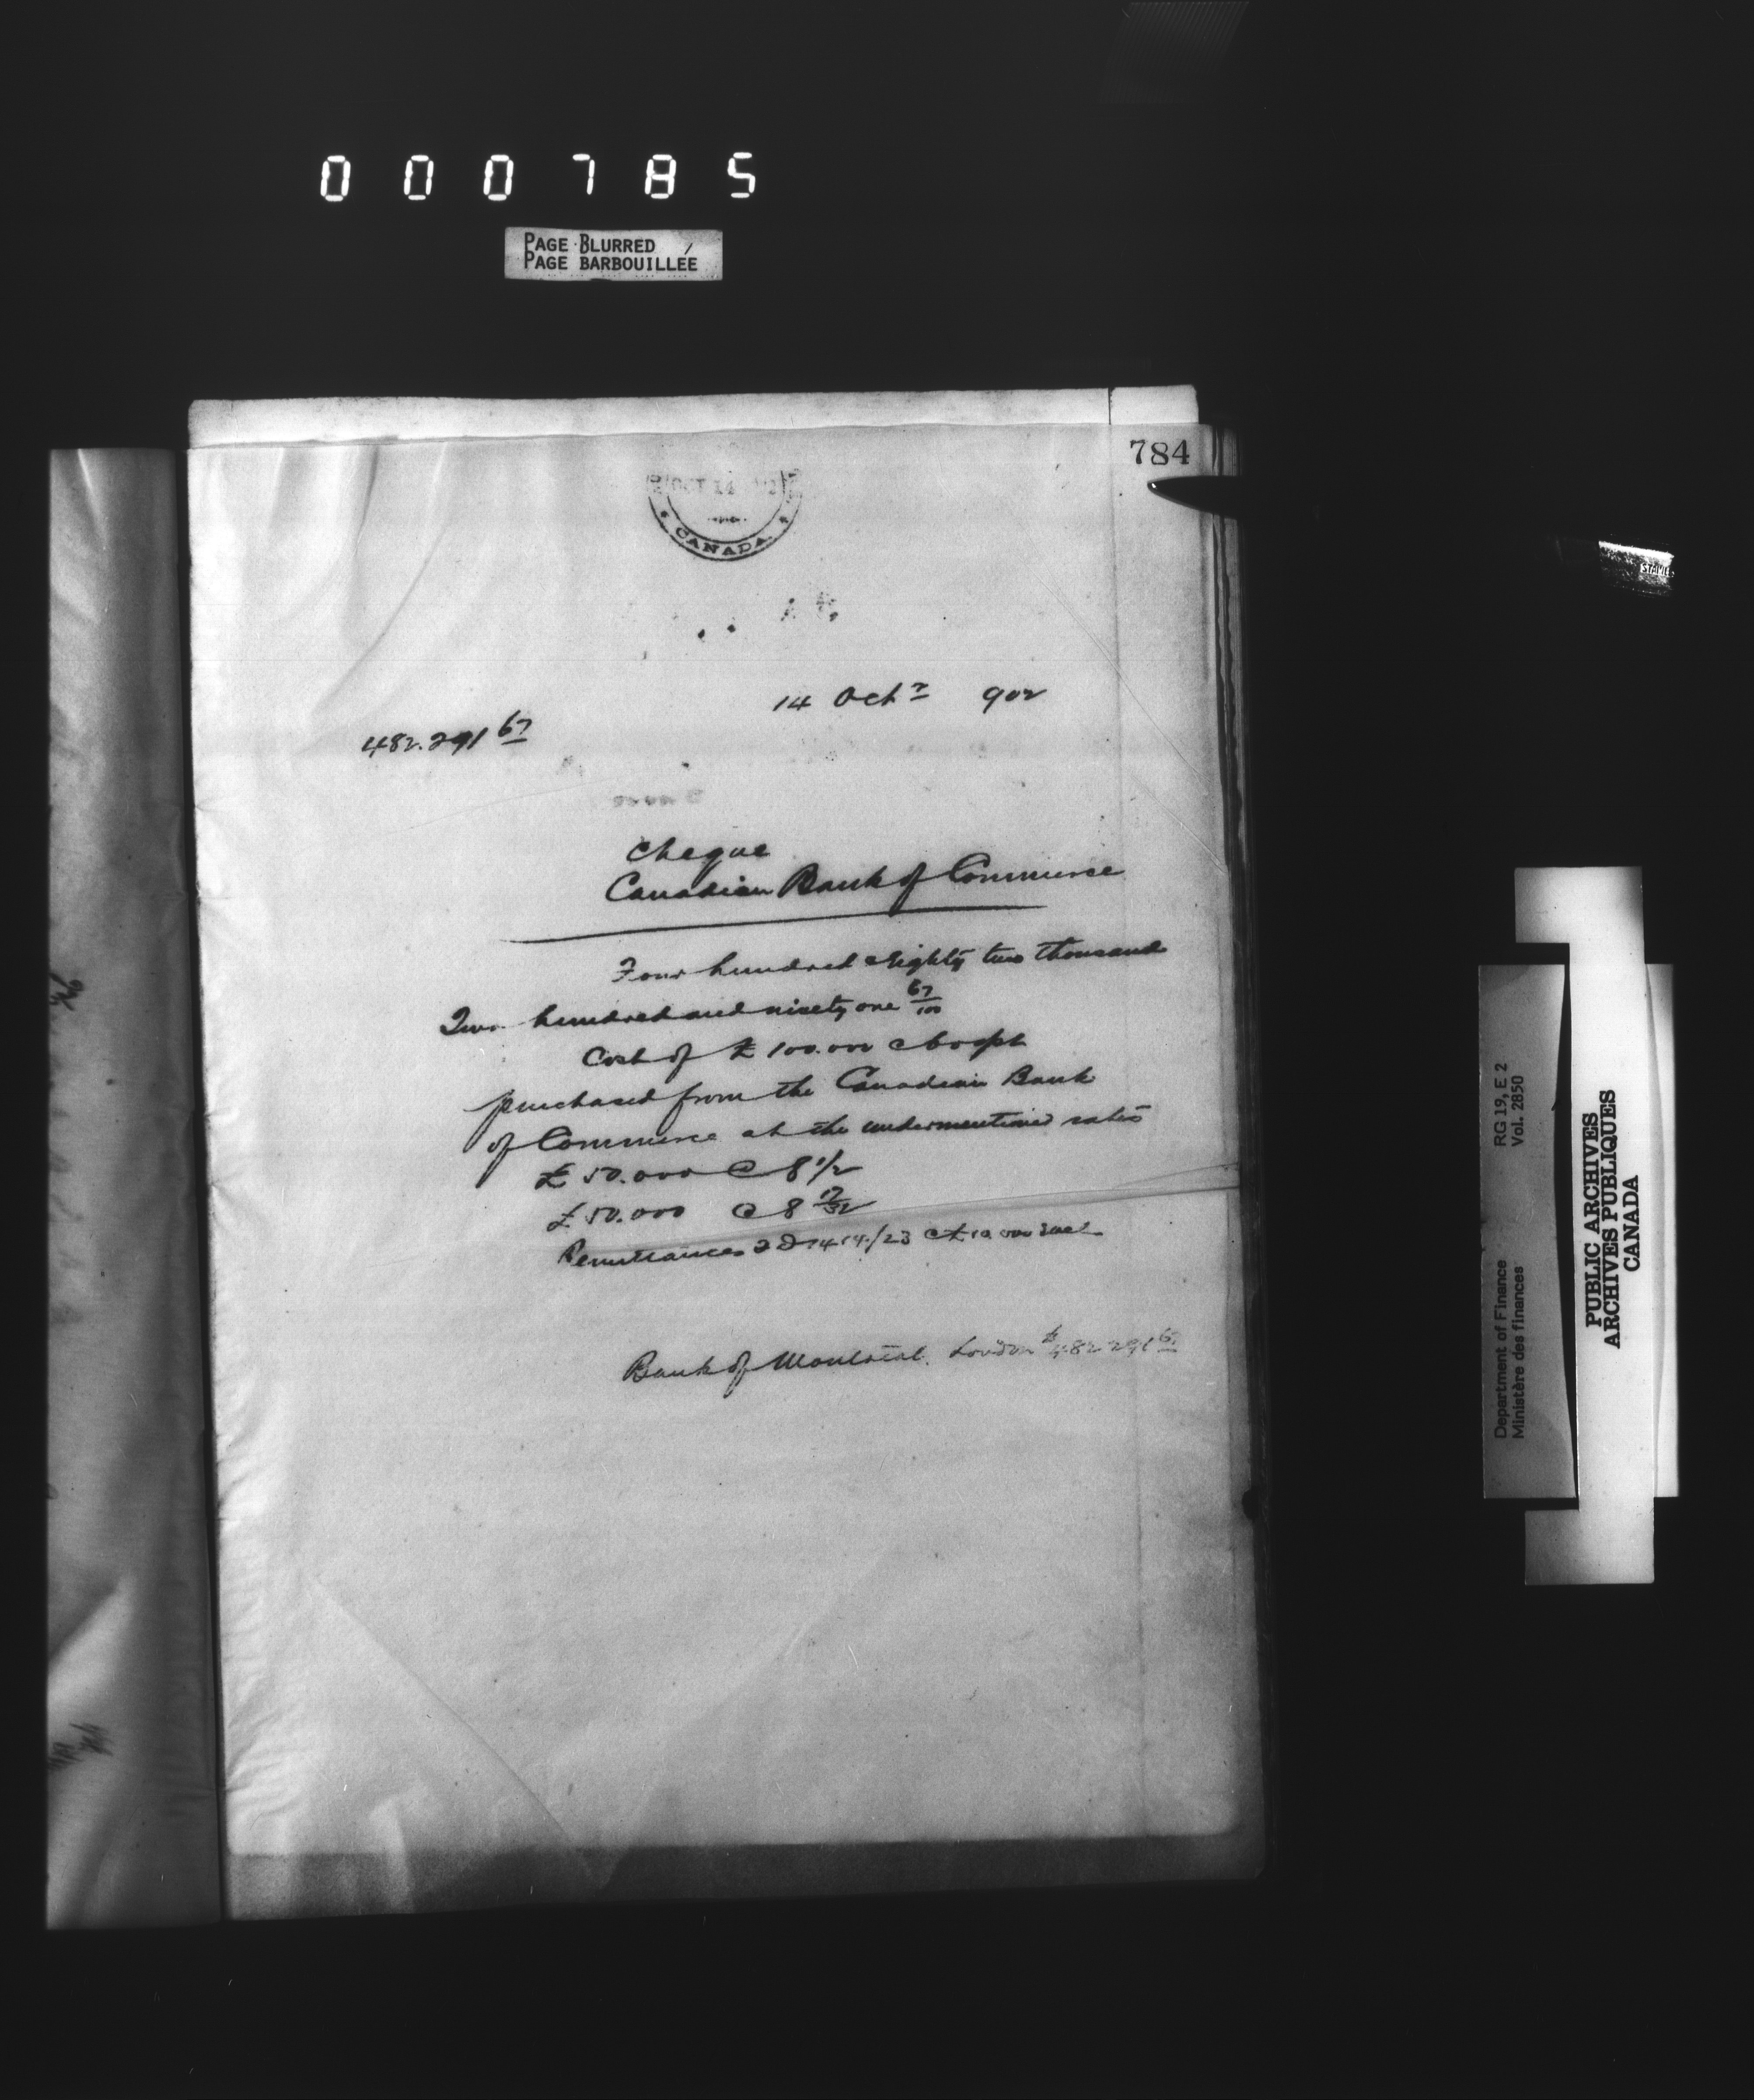 000785
PAGE BLURRED
PAGE BARBOUILLÉE
784
OCT 14
CANADA
14 Octr 902
482.291 67
Cheque
Canadian Bank of Commerce
Four hundred eighty two thousand
Two hundred and ninety one 67/100
Cost of £ 100.000
purchased from the Canadian Bank
of Commerce at the undermentioned rates
£ 50.000 @ 8 1/2
£ 50.000 @ 8 17/32
Remittances
Bank of Montreal. London $482.291 67
STAINED
RG 19, E 2
Vol. 2850
Department of Finance
Ministère des finances
PUBLIC ARCHIVES
ARCHIVES PUBLIQUES
CANADA